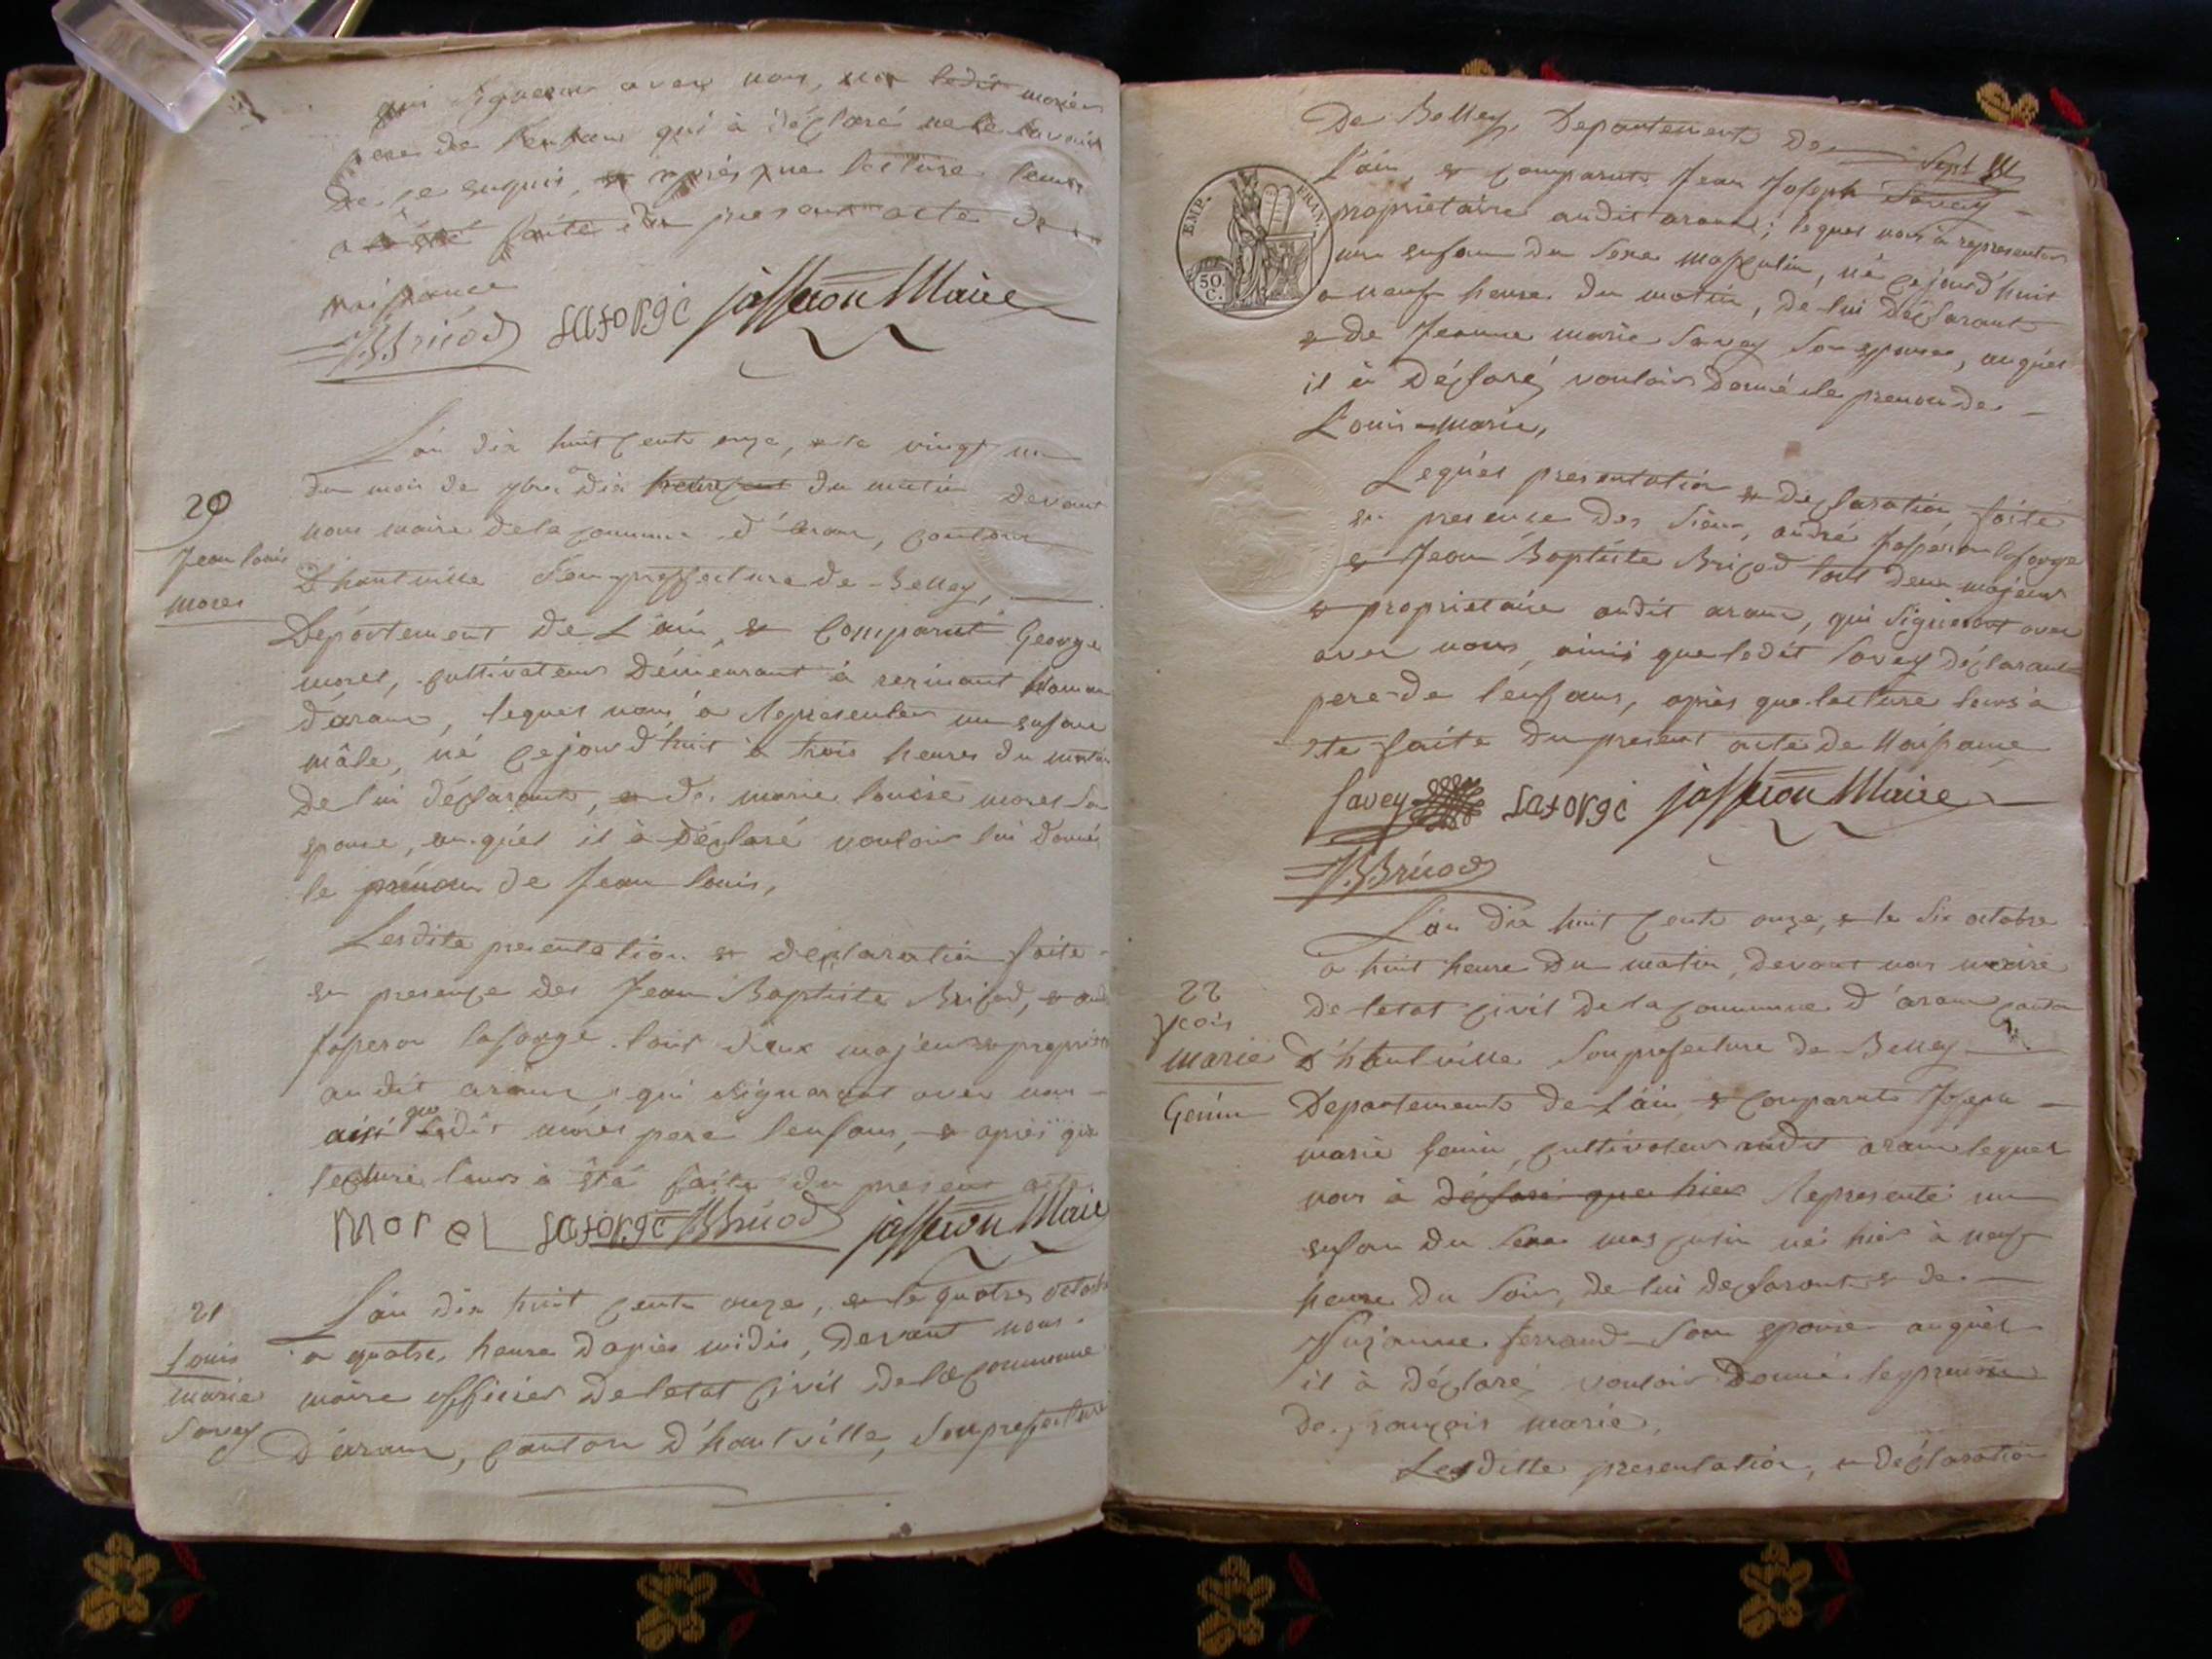 qui signeron avec nous, non ledit morier
pere de l'enfan qui à déclaré ne le savoir
de ce enquis, et après que lecture leurs
a été faite du present acte de
naissance
JB Bricod Laforge jasseron Maire
L'an dix huit cents onze, et le vingt un
du mois de 7bre à dix heures du matin devant
nous maire de la commune d'aran, canton
D'hautville souspreffecture de Belley,
Département de L'ain, est comparut George
morel, cultivateur demeurant à
d'aranc, lequel nous a representer un enfant
mâle, né cejourd'huit à trois heures du matin
de lui déclarant, et de marie louise morel sa
epouse, auquel il à déclaré vouloir lui donné
le prénom de Jean louis,
Lesdite presentation et declaration faite
en presence des Jean Baptiste Bricod, et andré
Jaseron laforge tout deux majeur et propriet
audit aranc, qui signaront avec nous
ainsi que ledit morel pere lenfant, et après que
lecture leurs à été faite du present acte.
Morel Laforge JB Bricod jasseron Maire
20
Jean louis
morel
L'an dix huit cents onze, et le quatre octobre
a quatre heure d'après midis, devant nous
maire officier de letat civil de la commune
D'aranc, canton d'hautville, souprefecture
21
Louis
marie
Savey
De Belley, Departement de
Sept
EMP. FRAN.
50 C.
L'ain, est comparut Jean Joseph Savey
propriétaire audit aranc; lequel nous à representer
un enfant du sexe masculin, né cejourd'huit
a neuf heure du matin, de lui déclarant
et de Jeanne marie Savey son epouse, auquel
il à déclaré vouloir donné le prenom de
Louis-marie,
Lequel presentation et déclaration faite
en presence des sieur, andré Jasperon laforge
et Jean Baptiste Bricod tout deux majeur
et proprietaire audit aranc, qui signeront avec
avec nous, ainsi que ledit Savey déclarant
pere de lenfant, après que lecture leurs à
éte faite du present acte de naissance
Savey Laforge jasseron Maire
JB Bricod
L'an dix huit cents onze, et le six octobre
a huit heure du matin, devant nous maire
de letat civil de la commune d'aranc canton
d'hautville souprefecture de Belley
Departement de L'ain est comparut Joseph
marie Genin, cultivateur audit aranc lequel
nous à déclaré que hier representé un
enfan du sexe masculin né hier à neuf
heure du soir, de lui declarant et de
Suzanne ferrand son epouse auquel
il à déclaré vouloir donné le prenom
de françois marie,
Lesditte presentation, et déclaration
22
marie
Genin